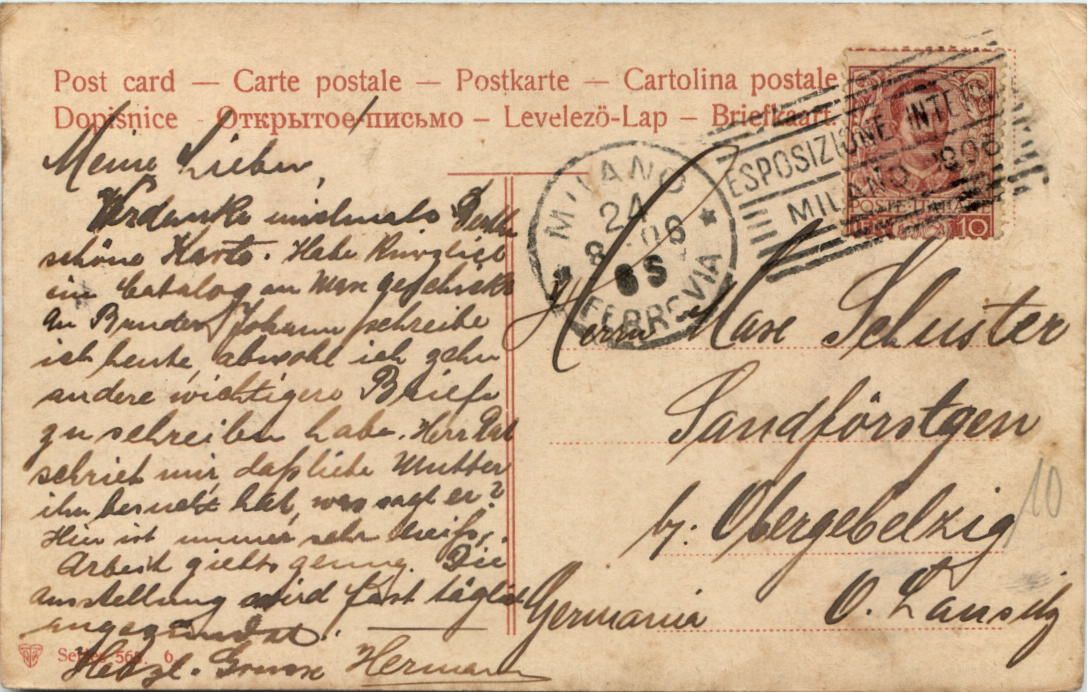 Post card — Carte postale — Postkarte — Cartolina postale
Dopisnice - Открытое письмо — Levelező-Lap — Briefkaart.
MILANO
24
8 06
8S
FERROVIA
ESPOSIZIONE INTER
MILANO 1906
POSTE ITALIANE
10
Meine Lieben,
Verdanke nochmals
schöne Karte. Habe kürzlich
ein Catalog an Max geschickt
An Bruder Johann schreibe
ich heute, obwohl ich zehn
andere wichtigere Briefe
zu schreiben habe. Herr
schrieb mir, daß liebe Mutter
ihn besucht hat, was sagt er?
Hier ist immer sehr heiß,
Arbeit giebts genug. Die
Ausstellung wird fast täglich
Herzl. Grüsse Hermann
Herrn Max Schuster
Sandförstgen
b. Obergebelzig
Germania O. Lausitz
10
Series 565. 6